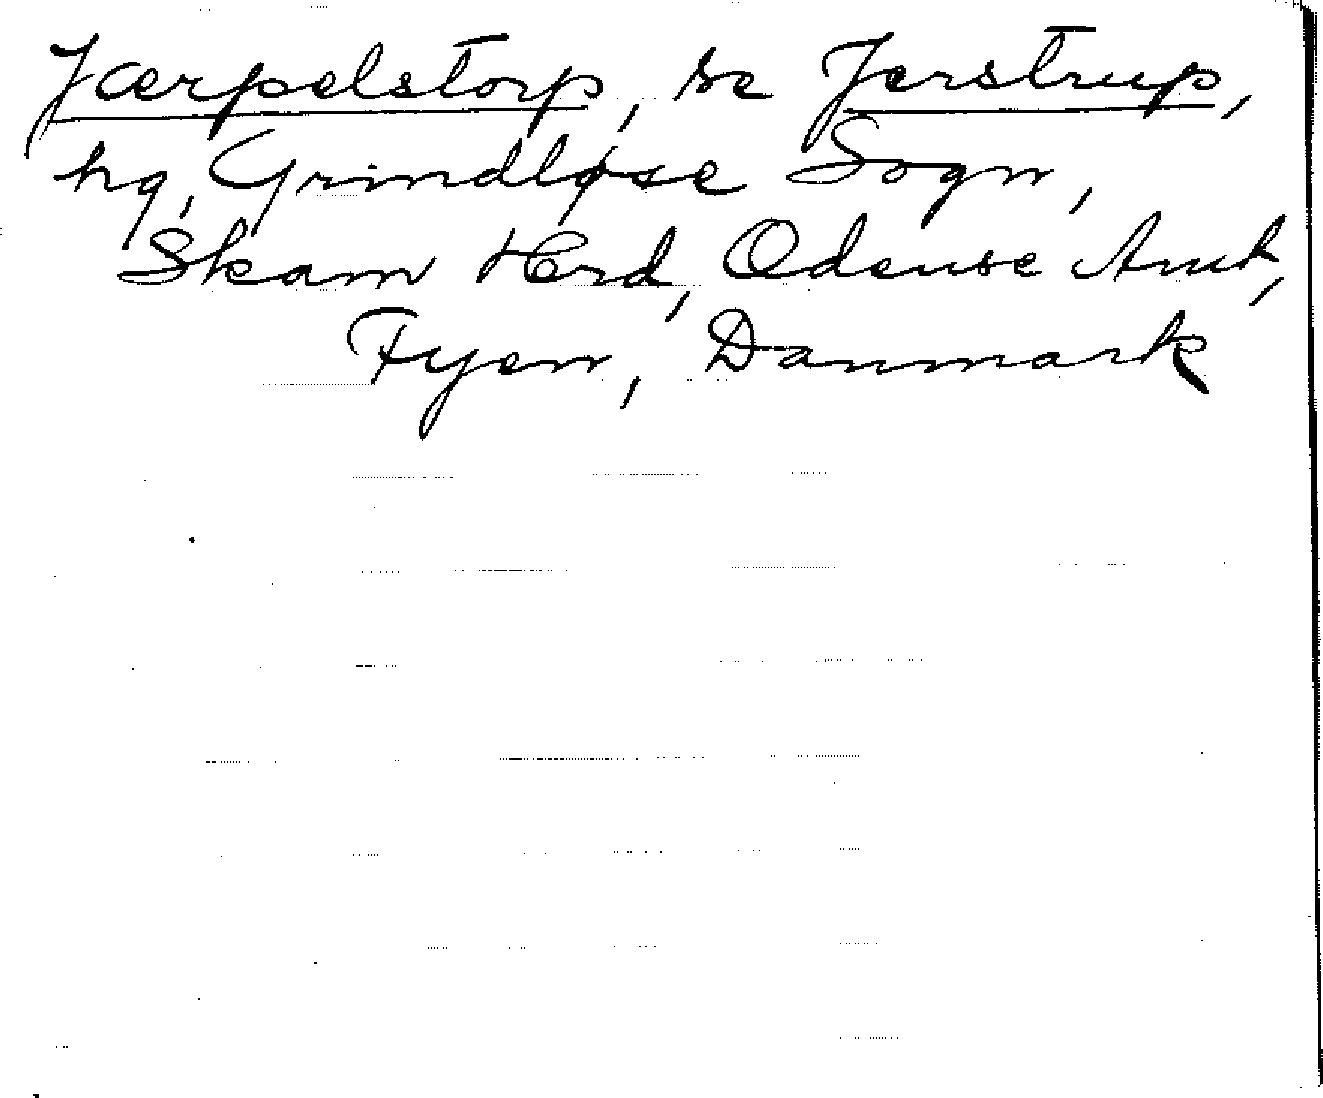 Jærpelstorp, se Jerstrup,
hg, Grindløse Sogn,
Skam Herd, Odense Amt,
Fyen, Danmark